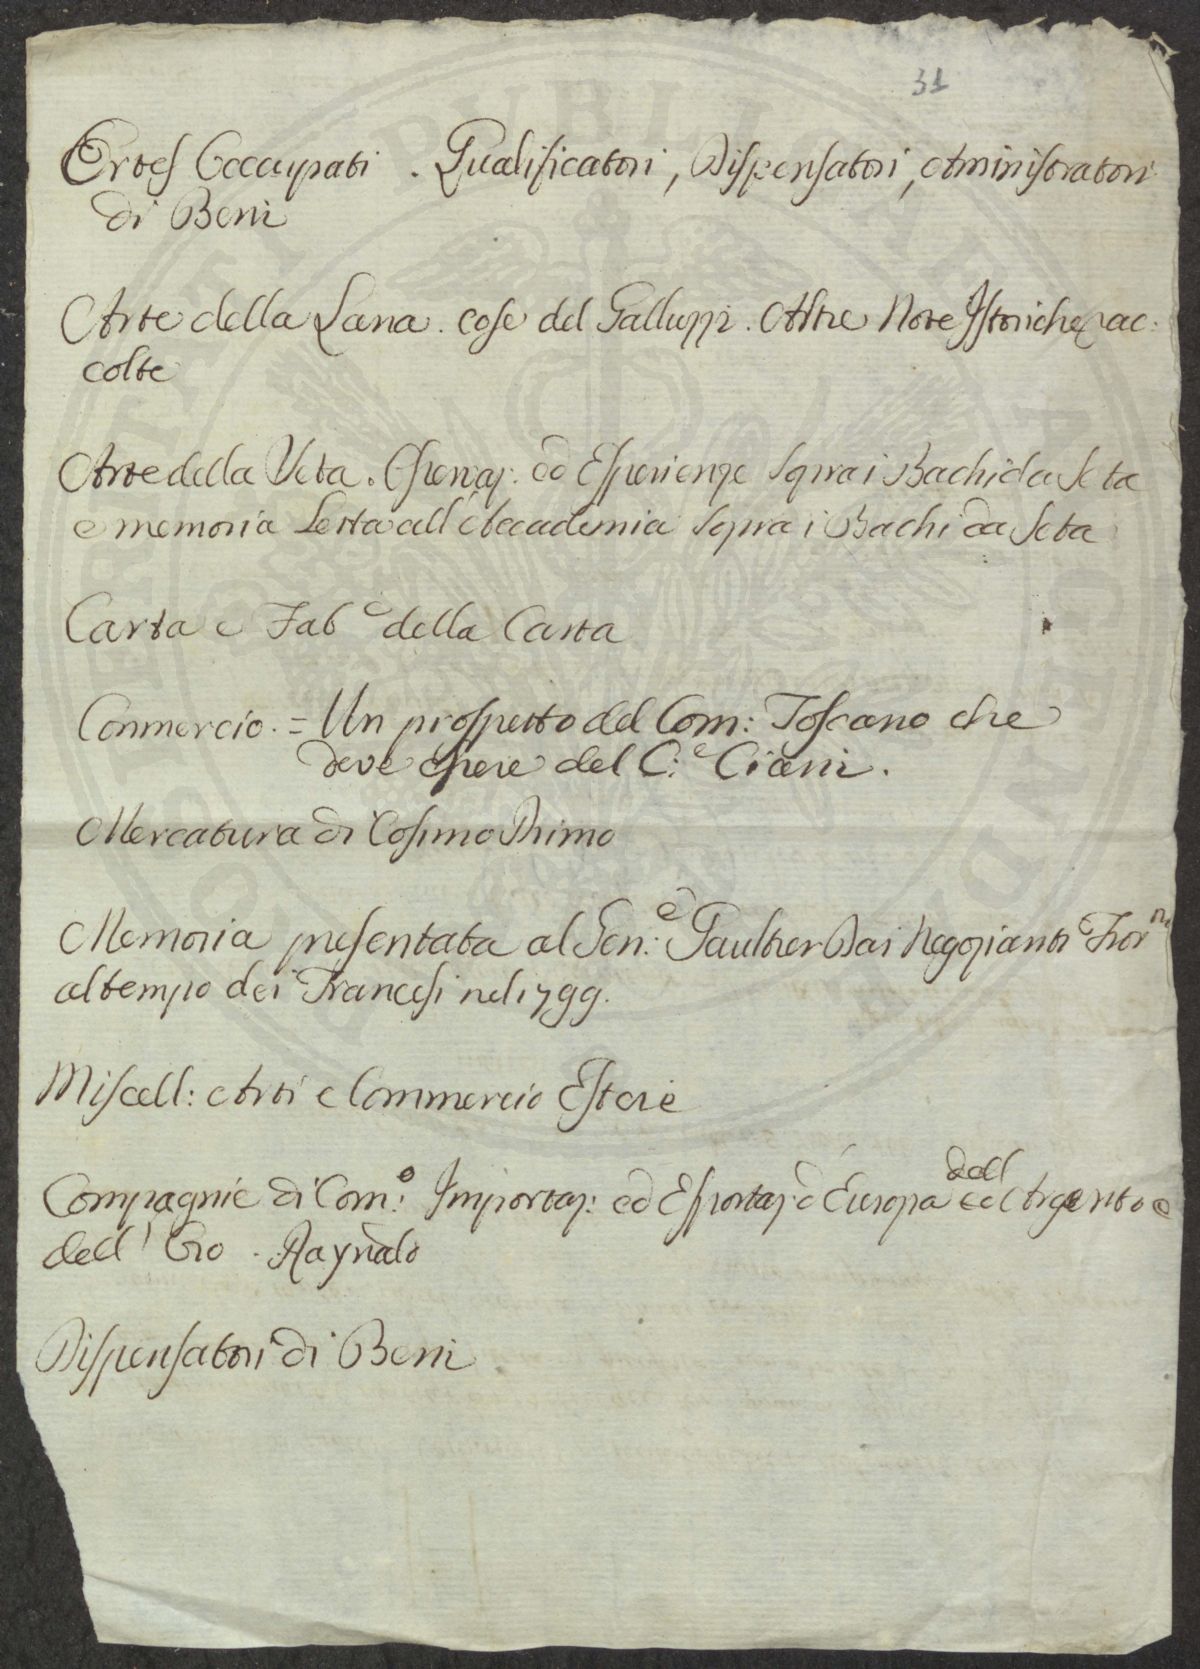 31
Qualificatori, Dispensatori, Aministratori
di Beni
Arte della Lana. cose del Galluzzi. Altre Note Istoriche rac:
colte
Arte della Seta. ed Esperienze sopra i Bachi da Seta
e memoria Letta all'Accademia sopra i Bachi da Seta
Carta e Fab.e della Carta
Commercio. = Un prospetto del Com: Toscano che
deve essere del C.e Ciani.
Mercatura di Cosimo Primo
Memoria presentata al Gen:e Gaultier Dai Negozianti Fior.ni
al tempo dei Francesi nel 1799.
Miscell: Arti e Commercio Estere
Compagnie di Com:o Importaz: ed Esportaz: d'Europa dell Argento e
dell'Oro. Raynaldo
Dispensatori di Beni